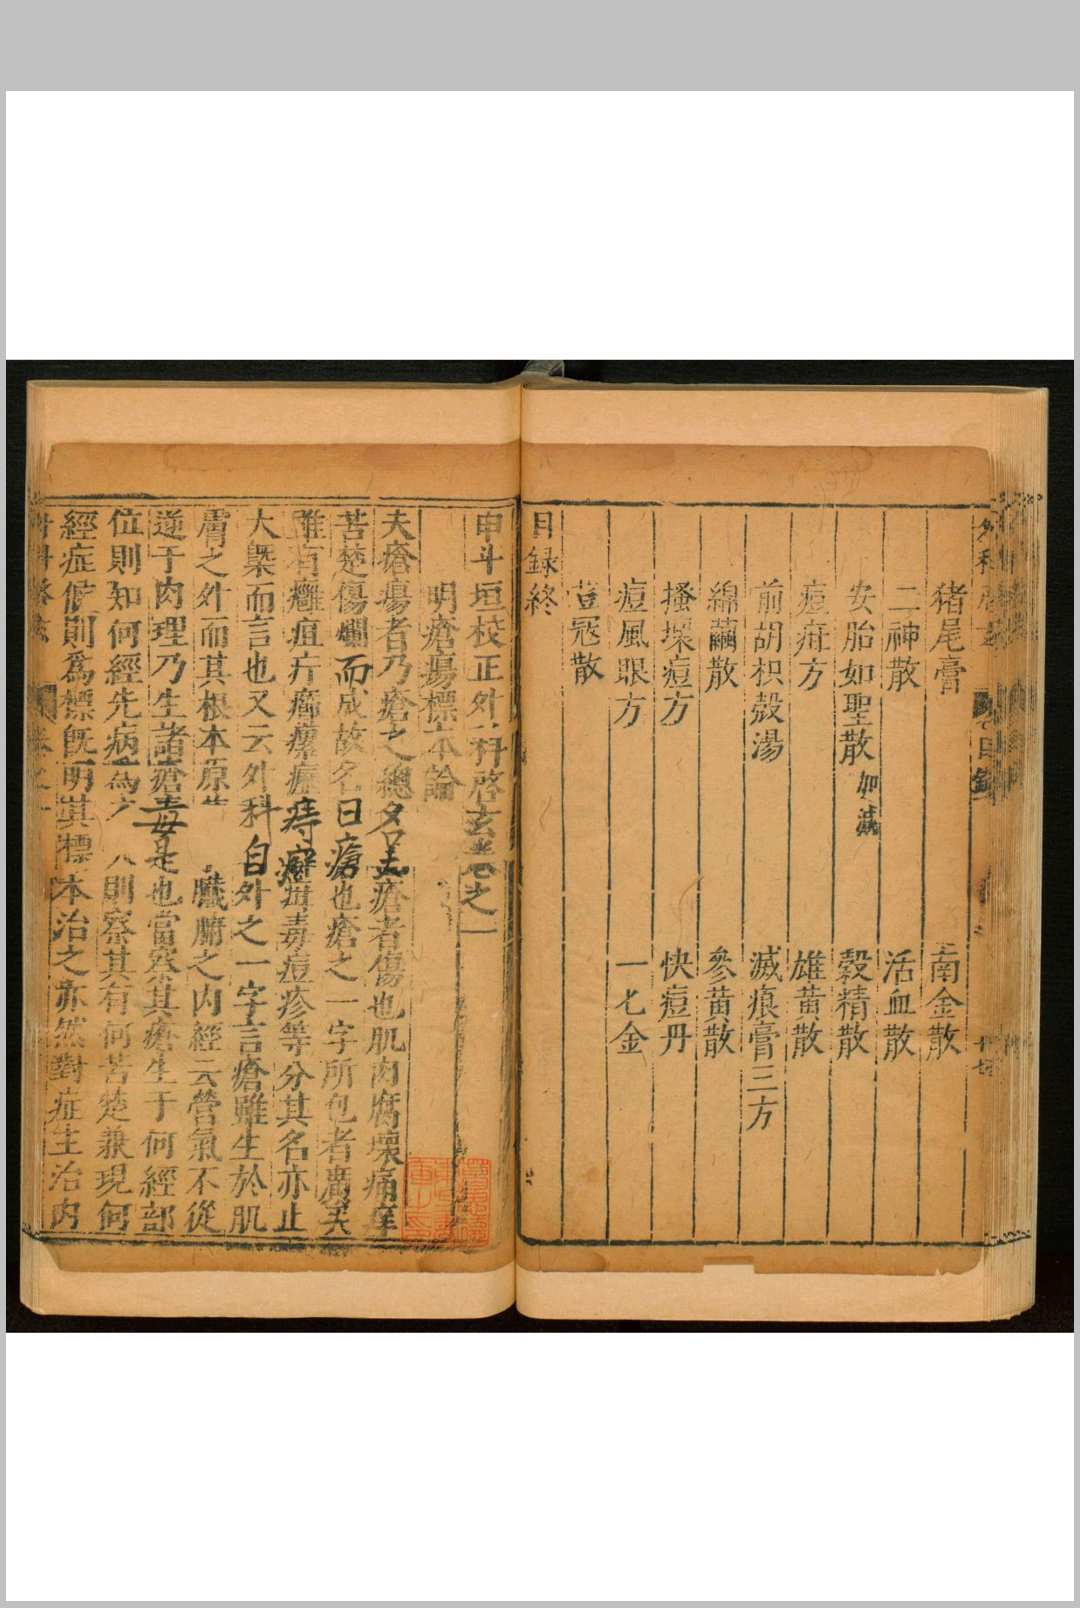 猪尾膏　南金散
二神散　活血散
安胎如聖散加減　穀精散
痘疳方　雄黃散
前胡枳殼湯　滅痕膏三方
綿繭散　參黃散
搔壞痘方　快痘丹
痘風眼方　一七金
荳冦散
目録終
申斗垣校正外科啓玄卷之一
明瘡瘍標本論
夫瘡瘍者乃瘡之總名夫瘡者傷也肌肉腐壞痛痒
苦楚傷爛而成故名曰瘡也瘡之一字所包者廣矣
雖有癰疽疔癤瘰癧痔癬毒痘疹等分其名亦止
大槩而言也又云外科自外之一字言瘡雖生於肌
膚之外而其根本原 臟腑之内經云營氣不從
逆于肉理乃生諸瘡毒是也當察其瘡生于何經部
位則知何經先病為 則察其有何苦楚兼現何
經症候則爲標旣明其標本治之亦然對症主治内